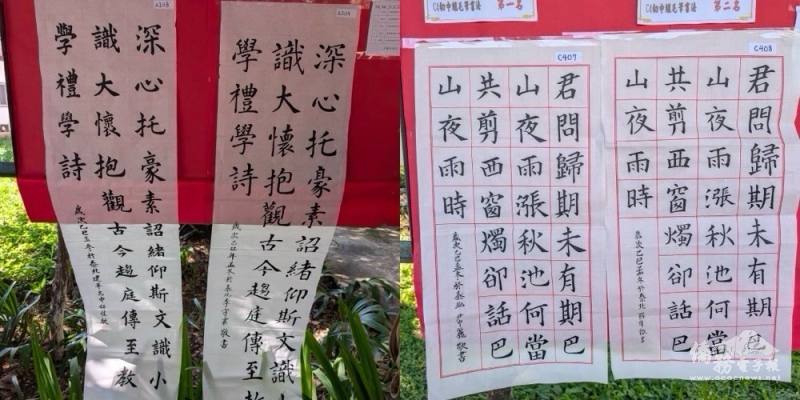 A203
深心托豪素詔緒仰斯文識小
識大懷抱觀古今趨庭傳至教
學禮學詩
A204
深心托豪素詔緒仰斯文識
識大懷抱觀古今趨庭傳至教
學禮學詩
C4初中龍毛筆書法 第一名
C407
君問歸期未有期巴
山夜雨漲秋池何當
共剪西窗燭卻話巴
山夜雨時
第二名
C408
君問歸期未有期巴
山夜雨漲秋池何當
共剪西窗燭卻話巴
山夜雨時
僑務電子報